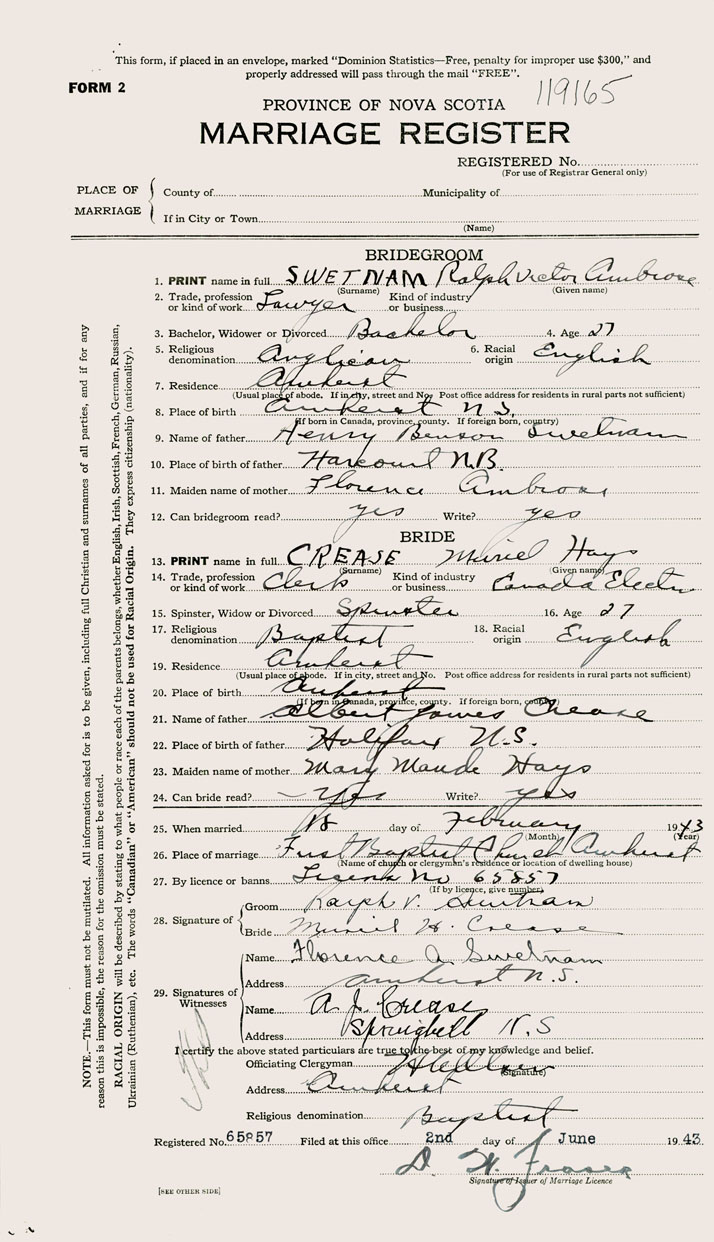 This form, if placed in an envelope, marked "Dominion Statistics—Free, penalty for improper use $300," and
properly addressed will pass through the mail "FREE".
FORM 2
119165
PROVINCE OF NOVA SCOTIA
MARRIAGE REGISTER
REGISTERED No.
(For use of Registrar General only)
PLACE OF MARRIAGE
County of Municipality of
If in City or Town
(Name)
BRIDEGROOM
1. PRINT name in full SWETNAM Ralph Victor Ambrose
(Surname) (Given name)
2. Trade, profession or kind of work Lawyer Kind of industry or business
3. Bachelor, Widower or Divorced Bachelor 4. Age 27
5. Religious denomination Anglican 6. Racial origin English
7. Residence Amherst
(Usual place of abode. If in city, street and No. Post office address for residents in rural parts not sufficient)
8. Place of birth Amherst N.S.
(If born in Canada, province, county. If foreign born, country)
9. Name of father Henry Benson Swetnam
10. Place of birth of father Harcourt N.B.
11. Maiden name of mother Florence Ambrose
12. Can bridegroom read? yes Write? yes
BRIDE
13. PRINT name in full CREASE Muriel Hays
(Surname) (Given name)
14. Trade, profession or kind of work Clerk Kind of industry or business Canada Electric
15. Spinster, Widow or Divorced Spinster 16. Age 27
17. Religious denomination Baptist 18. Racial origin English
19. Residence Amherst
(Usual place of abode. If in city, street and No. Post office address for residents in rural parts not sufficient)
20. Place of birth Amherst
(If born in Canada, province, county. If foreign born, country)
21. Name of father Albert James Crease
22. Place of birth of father Halifax N.S.
23. Maiden name of mother Mary Maude Hays
24. Can bride read? Yes Write? yes
25. When married 18 day of February 1943
(Month) (Year)
26. Place of marriage First Baptist Church Amherst
(Name of church or clergyman's residence or location of dwelling house)
27. By licence or banns License No 65857
(If by licence, give number)
28. Signature of
Groom Ralph V. Swetnam
Bride Muriel H. Crease
29. Signatures of Witnesses
Name Florence A Swetnam
Address Amherst N.S.
Name A. J. Crease
Address Springhill N.S
I certify the above stated particulars are true to the best of my knowledge and belief.
Officiating Clergyman
(Signature)
Address Amherst
Religious denomination Baptist
Registered No. 65857 Filed at this office 2nd day of June 1943.
D. W. Fraser
Signature of Issuer of Marriage Licence
[SEE OTHER SIDE]
NOTE.—This form must not be mutilated. All information asked for is to be given, including full Christian and surnames of all parties, and if for any
reason this is impossible, the reason for the omission must be stated.
RACIAL ORIGIN will be described by stating to what people or race each of the parents belongs, whether English, Irish, Scottish, French, German, Russian,
Ukrainian (Ruthenian), etc. The words "Canadian" or "American" should not be used for Racial Origin. They express citizenship (nationality).